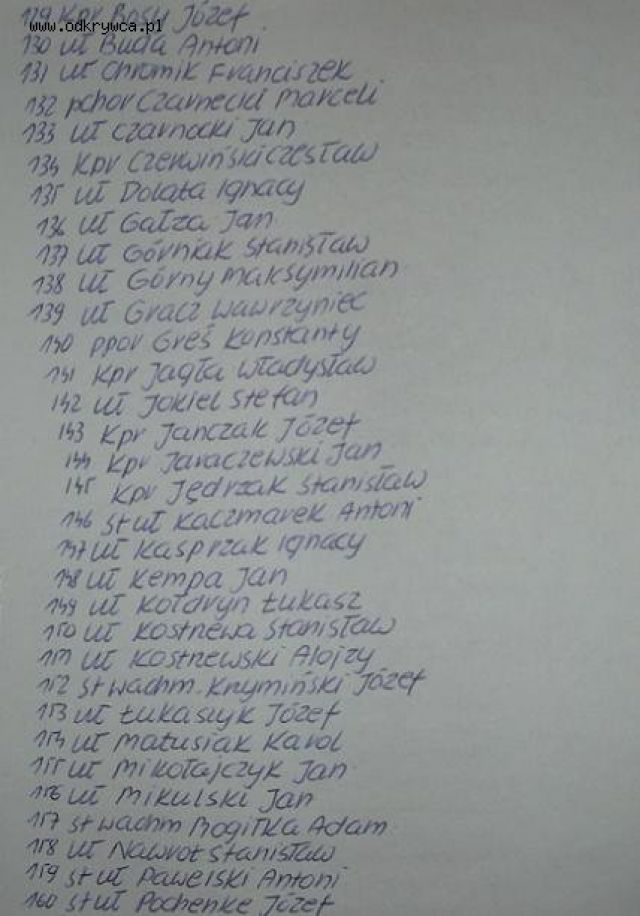 129 Kpr Josef Józef
www.odkrywca.pl
130 uł Buda Antoni
131 uł Chromik Franciszek
132 pchor Czarnecki Marceli
133 uł Czarnocki Jan
134 Kpr Czerwiński Czesław
135 uł Dolata Ignacy
136 uł Gałza Jan
137 uł Górniak Stanisław
138 uł Górny Maksymilian
139 uł Gracz Wawrzyniec
140 ppor Greś Konstanty
141 Kpr Jagła Władysław
142 uł Jokiel Stefan
143 Kpr Janczak Józef
144 Kpr Jaraczewski Jan
145 Kpr Jędrzak Stanisław
146 st uł Kaczmarek Antoni
147 uł Kasprzak Ignacy
148 uł Kempa Jan
149 uł Kołdryn Łukasz
150 uł Kostnewa Stanisław
151 uł Kostnewski Alojzy
152 st wachm. Knymiński Józef
153 uł Łukaszyk Józef
154 uł Matusiak Karol
155 uł Mikołajczyk Jan
156 uł Mikulski Jan
157 st wachm Mogiłka Adam
158 uł Nawrot Stanisław
159 st uł Pawelski Antoni
160 st uł Pochenke Józef